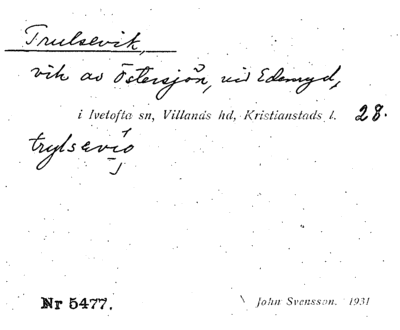 Trulsevik,
vik av Östersjön, vid Edenryd,
i Ivetofta sn, Villands hd, Kristianstads l. 28.
Nr 5477.
John Svensson. 1931